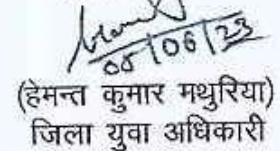 08/06/23
(हेमन्त कुमार मथुरिया)
जिला युवा अधिकारी